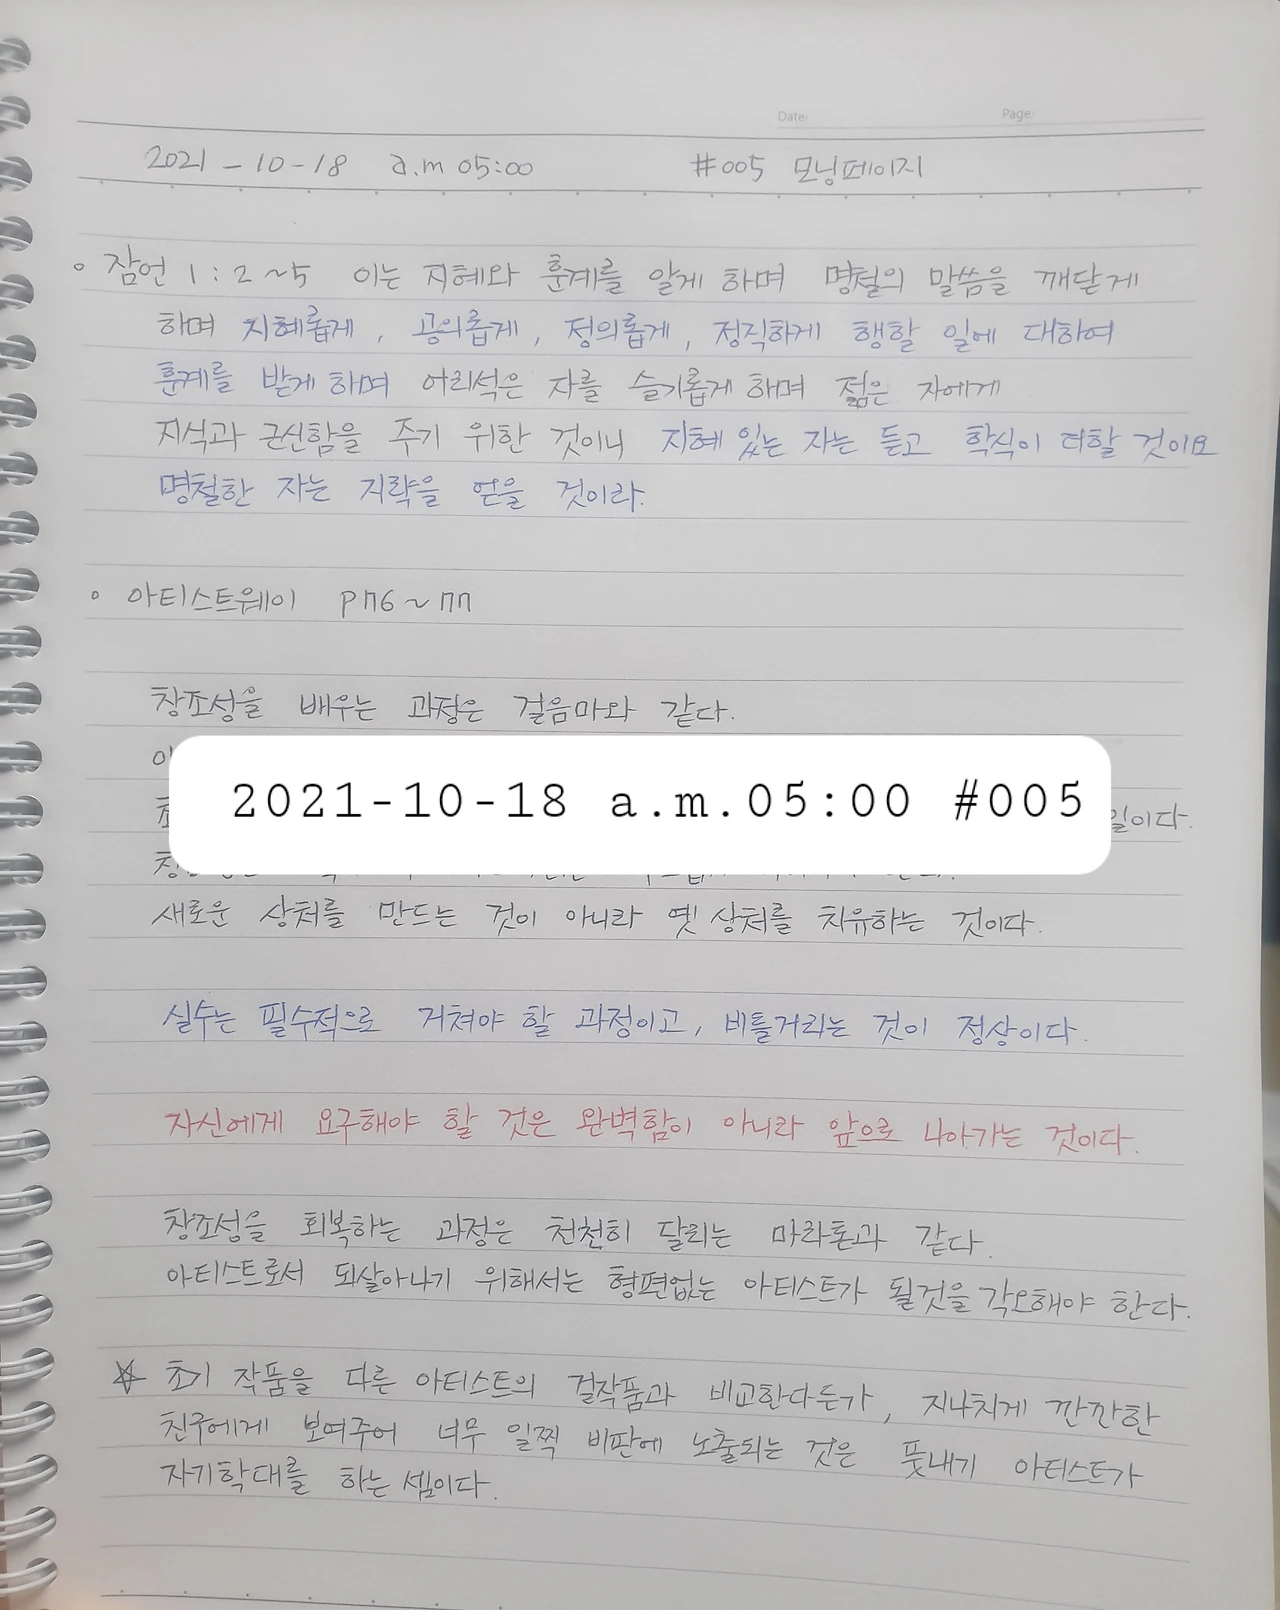 Date/
Page/
2021 - 10 - 18 a.m 05:00 #005 모닝페이지
◦ 잠언 1 : 2 ~ 5 이는 지혜와 훈계를 알게 하며 명철의 말씀을 깨닫게
하며 지혜롭게, 공의롭게, 정의롭게, 정직하게 행할 일에 대하여
훈계를 받게 하며 어리석은 자를 슬기롭게 하며 젊은 자에게
지식과 근신함을 주기 위한 것이니 지혜 있는 자는 듣고 학식이 더할 것이요
명철한 자는 지략을 얻을 것이라.
◦ 아티스트웨이 P76 ~ 77
창조성을 배우는 과정은 걸음마와 같다.
2021-10-18 a.m.05:00 #005
일이다.
새로운 상처를 만드는 것이 아니라 옛 상처를 치유하는 것이다.
실수는 필수적으로 거쳐야 할 과정이고, 비틀거리는 것이 정상이다.
자신에게 요구해야 할 것은 완벽함이 아니라 앞으로 나아가는 것이다.
창조성을 회복하는 과정은 천천히 달리는 마라톤과 같다.
아티스트로서 되살아나기 위해서는 형편없는 아티스트가 될것을 각오해야 한다.
☆ 초기 작품을 다른 아티스트의 걸작품과 비교한다든가, 지나치게 깐깐한
친구에게 보여주어 너무 일찍 비판에 노출되는 것은 풋내기 아티스트가
자기학대를 하는 셈이다.